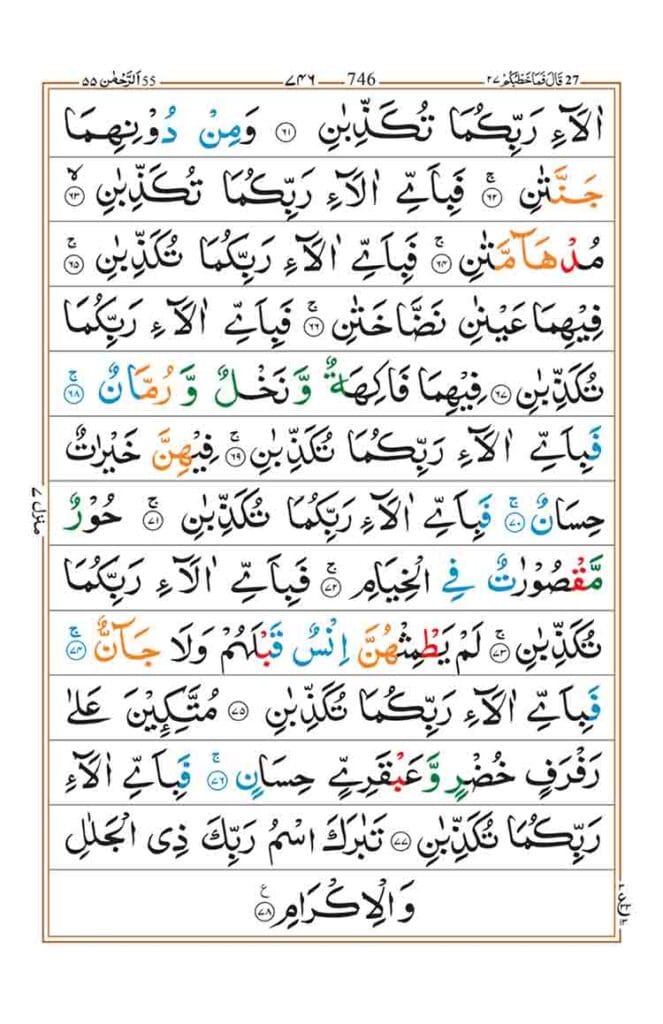 ٢٧ قَالَ فَمَا خَطْبُكُمْ 27 746 ٧٤٦ اَلرَّحْمٰن 55 ٥٥
اٰلَآءِ رَبِّكُمَا تُكَذِّبٰنِ ٦١ وَمِنْ دُوْنِهِمَا
جَنَّتٰنِ ۚ ٦٢ فَبِاَيِّ اٰلَآءِ رَبِّكُمَا تُكَذِّبٰنِ ۙ ٦٣
مُدْهَآمَّتٰنِ ۚ ٦٤ فَبِاَيِّ اٰلَآءِ رَبِّكُمَا تُكَذِّبٰنِ ۚ ٦٥
فِيْهِمَا عَيْنٰنِ نَضَّاخَتٰنِ ۚ ٦٦ فَبِاَيِّ اٰلَآءِ رَبِّكُمَا
تُكَذِّبٰنِ ٦٧ فِيْهِمَا فَاكِهَةٌ وَّ نَخْلٌ وَّ رُمَّانٌ ۚ ٦٨
فَبِاَيِّ اٰلَآءِ رَبِّكُمَا تُكَذِّبٰنِ ۚ ٦٩ فِيْهِنَّ خَيْرٰتٌ
حِسَانٌ ۚ ٧٠ فَبِاَيِّ اٰلَآءِ رَبِّكُمَا تُكَذِّبٰنِ ۚ ٧١ حُوْرٌ
مَّقْصُوْرٰتٌ فِي الْخِيَامِ ۚ ٧٢ فَبِاَيِّ اٰلَآءِ رَبِّكُمَا
تُكَذِّبٰنِ ۚ ٧٣ لَمْ يَطْمِثْهُنَّ اِنْسٌ قَبْلَهُمْ وَلَا جَآنٌّ ۚ ٧٤
فَبِاَيِّ اٰلَآءِ رَبِّكُمَا تُكَذِّبٰنِ ٧٥ مُتَّكِـِٕيْنَ عَلٰى
رَفْرَفٍ خُضْرٍ وَّعَبْقَرِيٍّ حِسَانٍ ۚ ٧٦ فَبِاَيِّ اٰلَآءِ
رَبِّكُمَا تُكَذِّبٰنِ ٧٧ تَبٰرَكَ اسْمُ رَبِّكَ ذِي الْجَلٰلِ
وَالْاِكْرَامِ ࣖ ٧٨
منزل ٧